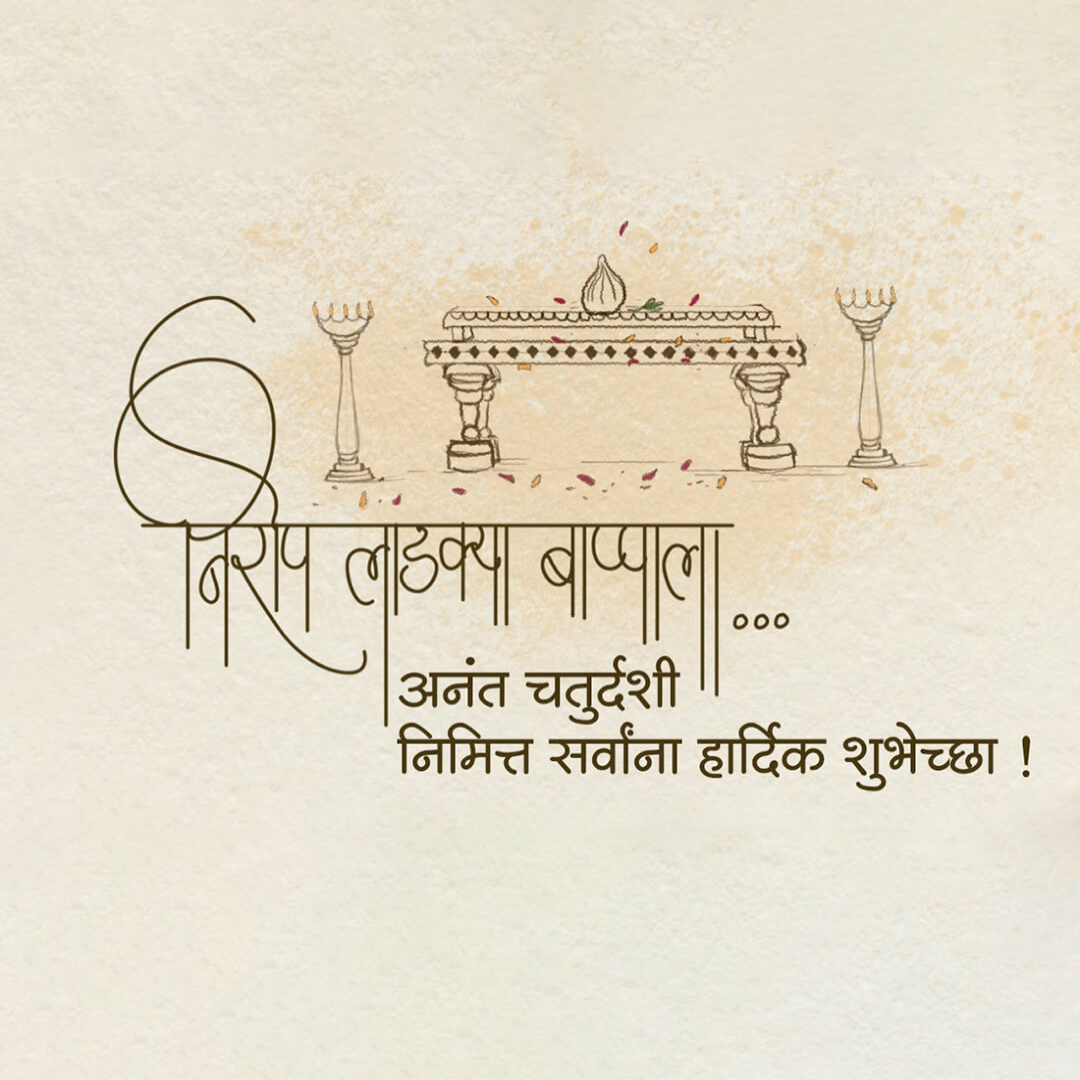 निरोप लाडक्या बाप्पाला...
अनंत चतुर्दशी
निमित्त सर्वांना हार्दिक शुभेच्छा !